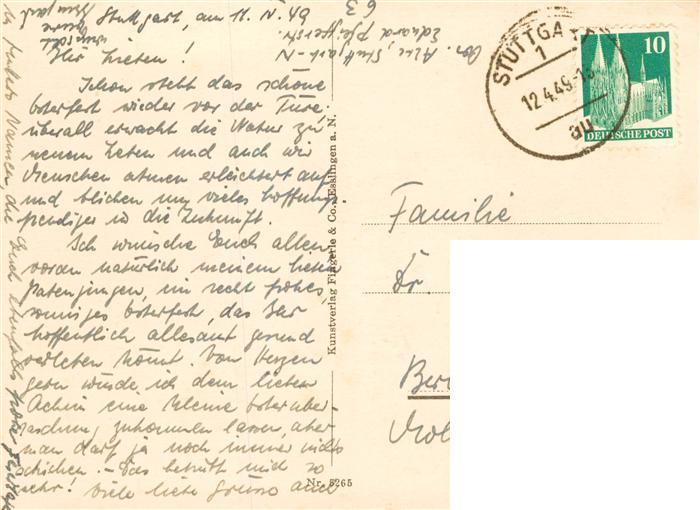 Stuttgart, am 11. IV. 49
Ihr Lieben!
Schon steht das schöne
Osterfest wieder vor der Türe
überall erwacht die Natur zu
neuem Leben und auch wir
Menschen atmen erleichtert auf
und blicken um vieles hoffnungs-
freudiger in die Zukunft.
Ich wünsche Euch allen
voran natürlich meinem lieben
Patenjungen, ein recht frohes
sonniges Osterfest, das Ihr
hoffentlich allesamt gesund
verleben könnt. Von Herzen
gern würde ich dem lieben
Achim eine kleine Osterüber-
raschung zukommen lassen, aber
man darf ja noch immer nichts
schicken. - Das betrübt mich so
sehr! Viele liebe Grüsse auch
63
Stuttgart-N
Eduard Pfeifferstr.
STUTTGART
1
12.4.49
au
10
DEUTSCHE POST
Kunstverlag Fingerle & Co., Esslingen a. N.
Nr. 5265
Familie
Dr.